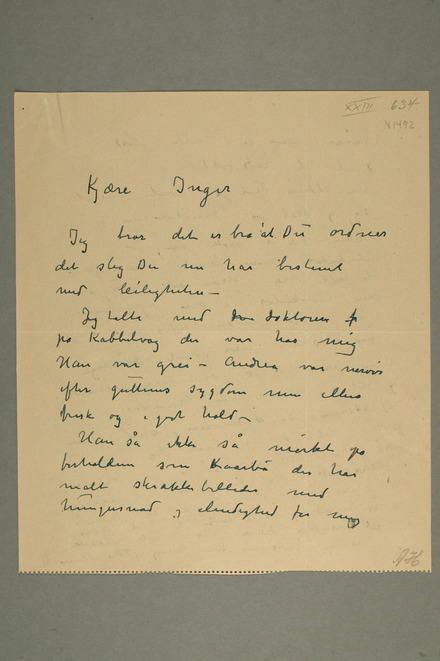 XXIII 634
N 1492
Kjære Inger
Jeg tror det er bra at Du ordner
det slig Du nu har bestemt
med leiligheten –
Jeg talte med doktoren
på Kabbelvåg der var hos mig
Han var grei – Andrea var nervøs
efter guttens sygdom men ellers
frisk og i godt hold –
Han så ikke så mørkt på
forholdene som Kaarbø der har
malt skrækkebilleder med
hungersnød og elendighed for mig